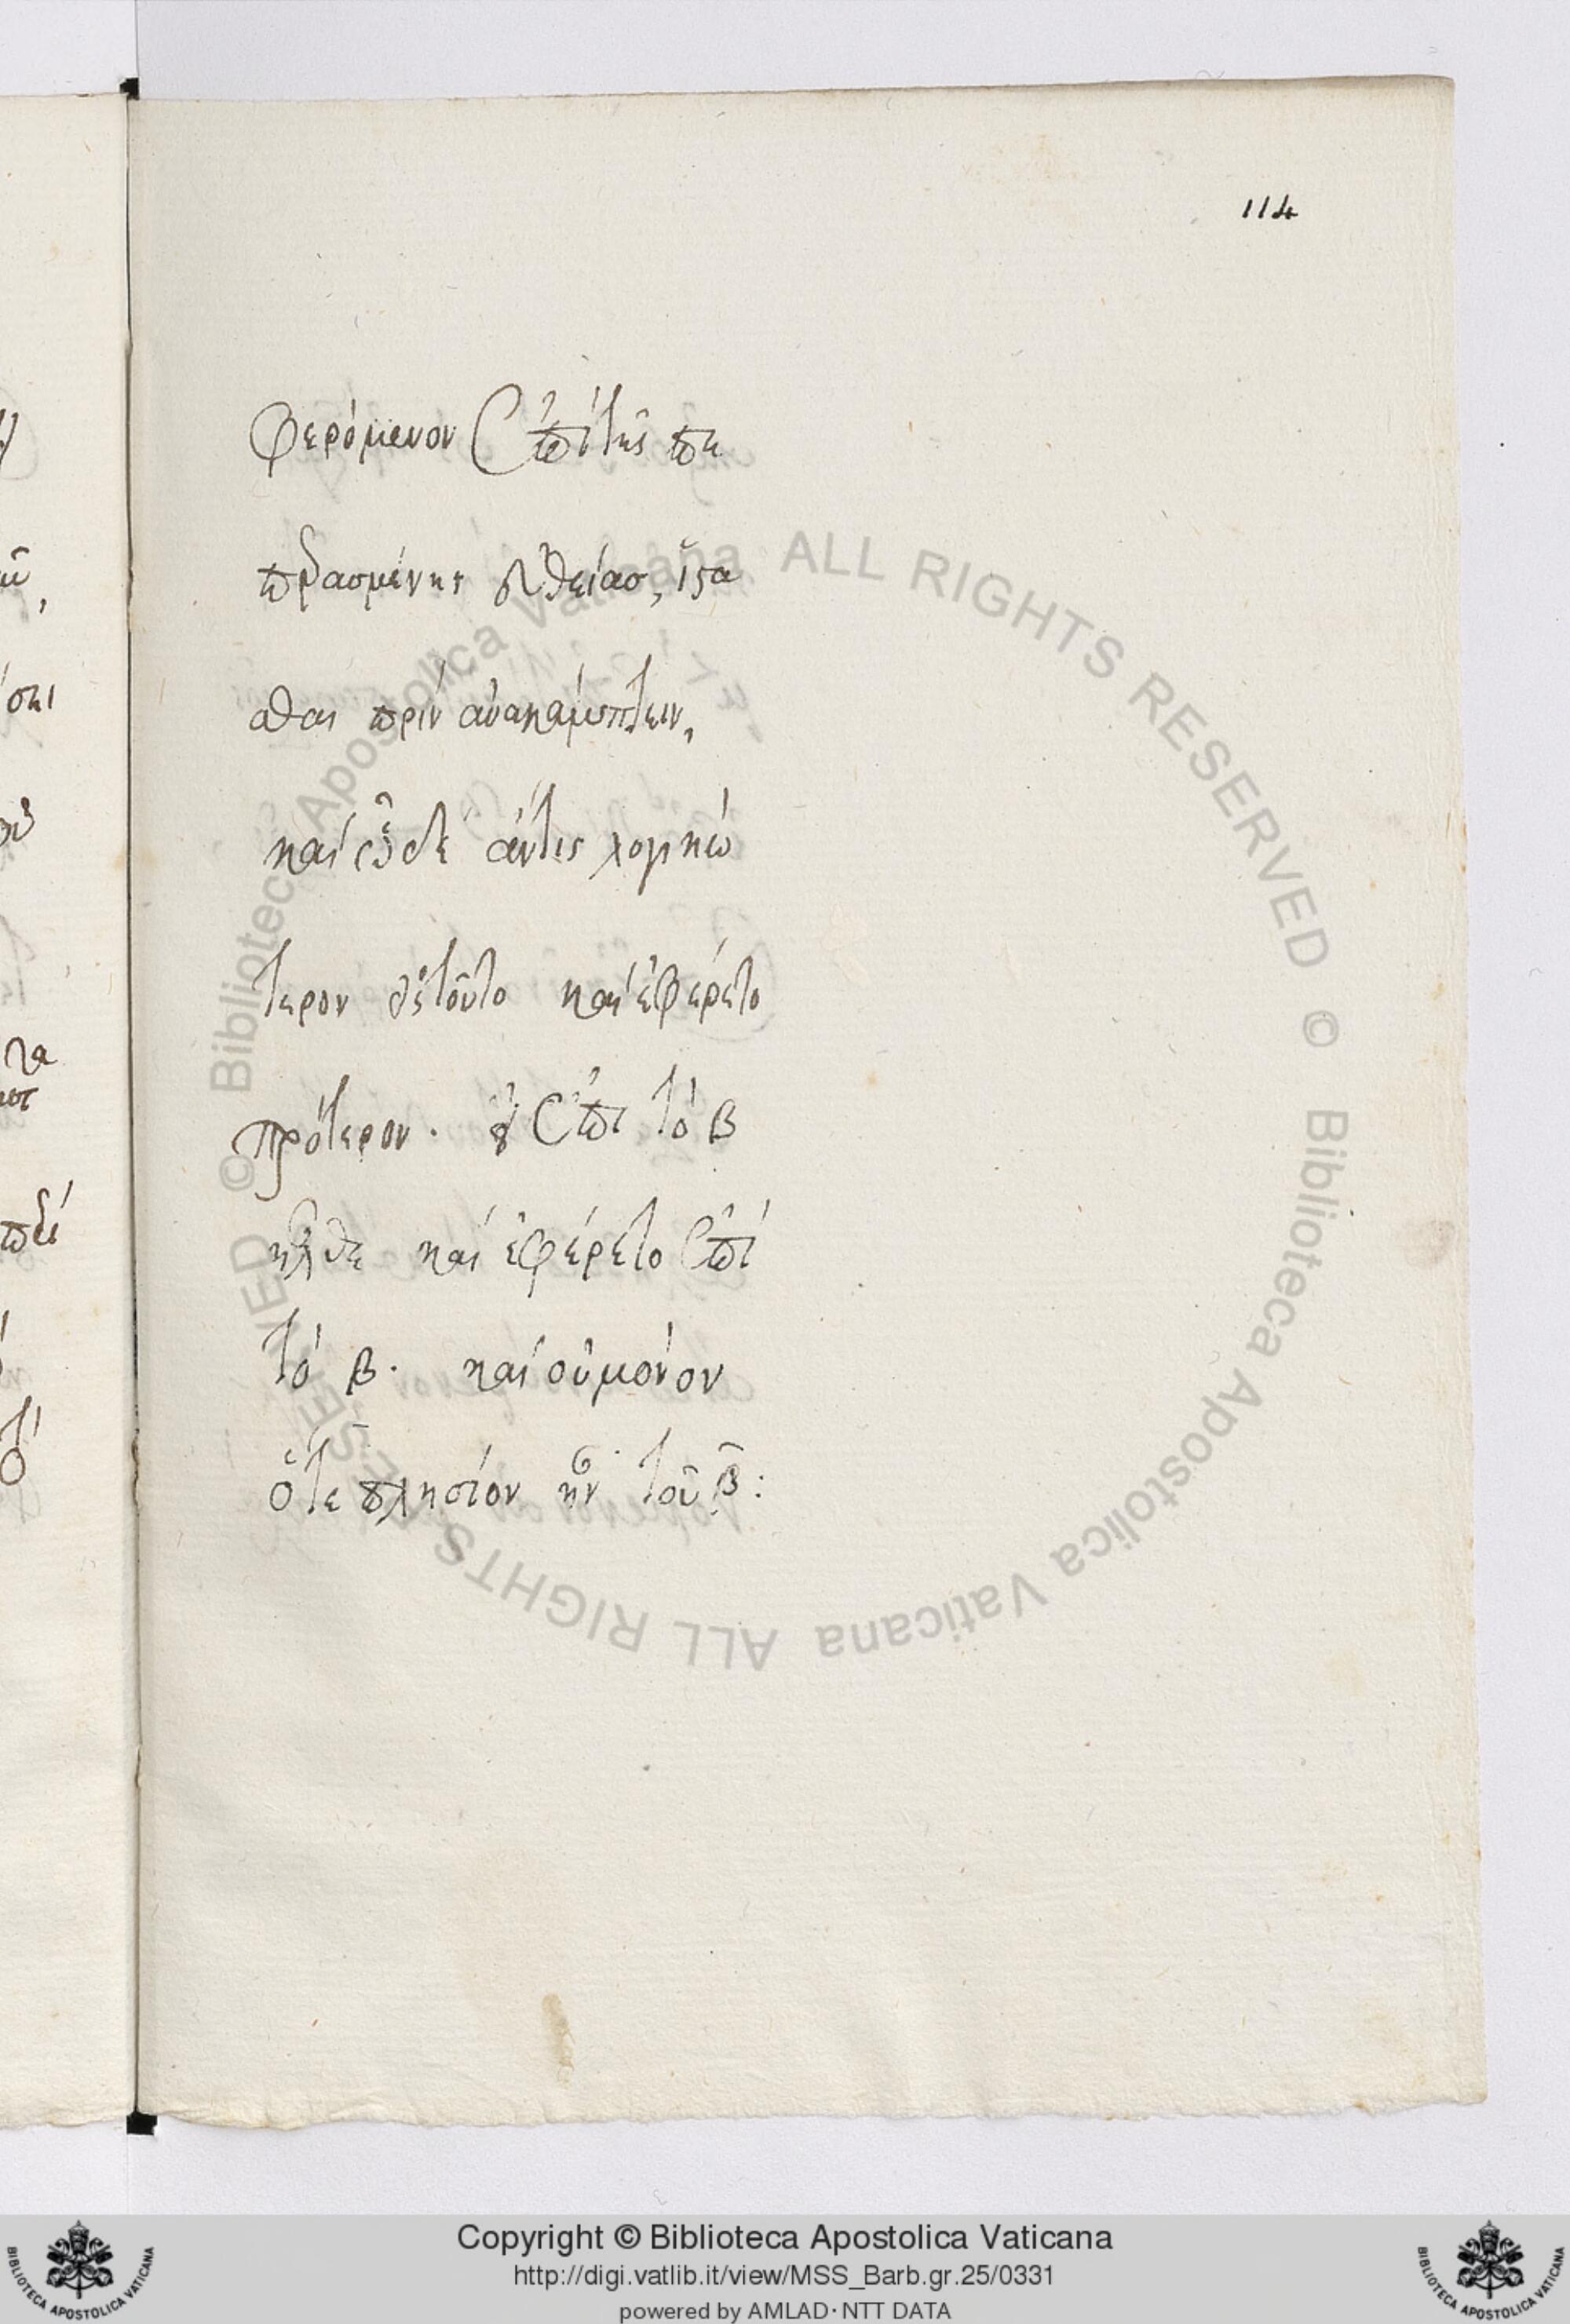 114
φερόμενον ἐπὶ τῆς πε
περασμένης εὐθείας, ἵστα
σθαι πρὶν ἀνακάμπτειν,
καὶ
τερον δὲ τοῦτο καὶ ἐφέρετο
πρότερον. οὐ ἐπὶ τὸ β
ἦλθε καὶ ἐφέρετο ἐπὶ
τὸ β. καὶ οὐ μόνον
ὅτε πλησίον ἦν τοῦ β:
© Biblioteca Apostolica Vaticana ALL RIGHTS RESERVED © Biblioteca Apostolica Vaticana ALL RIGHTS RESERVED
Copyright © Biblioteca Apostolica Vaticana
http://digi.vatlib.it/view/MSS_Barb.gr.25/0331
powered by AMLAD · NTT DATA
BIBLIOTECA APOSTOLICA VATICANA
BIBLIOTECA APOSTOLICA VATICANA